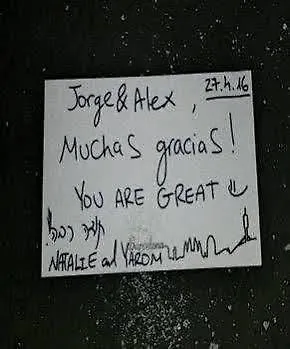 Jorge & Alex , 27.4.16
Muchas gracias!
YOU ARE GREAT
תודה רבה!
NATALIE and YAROM